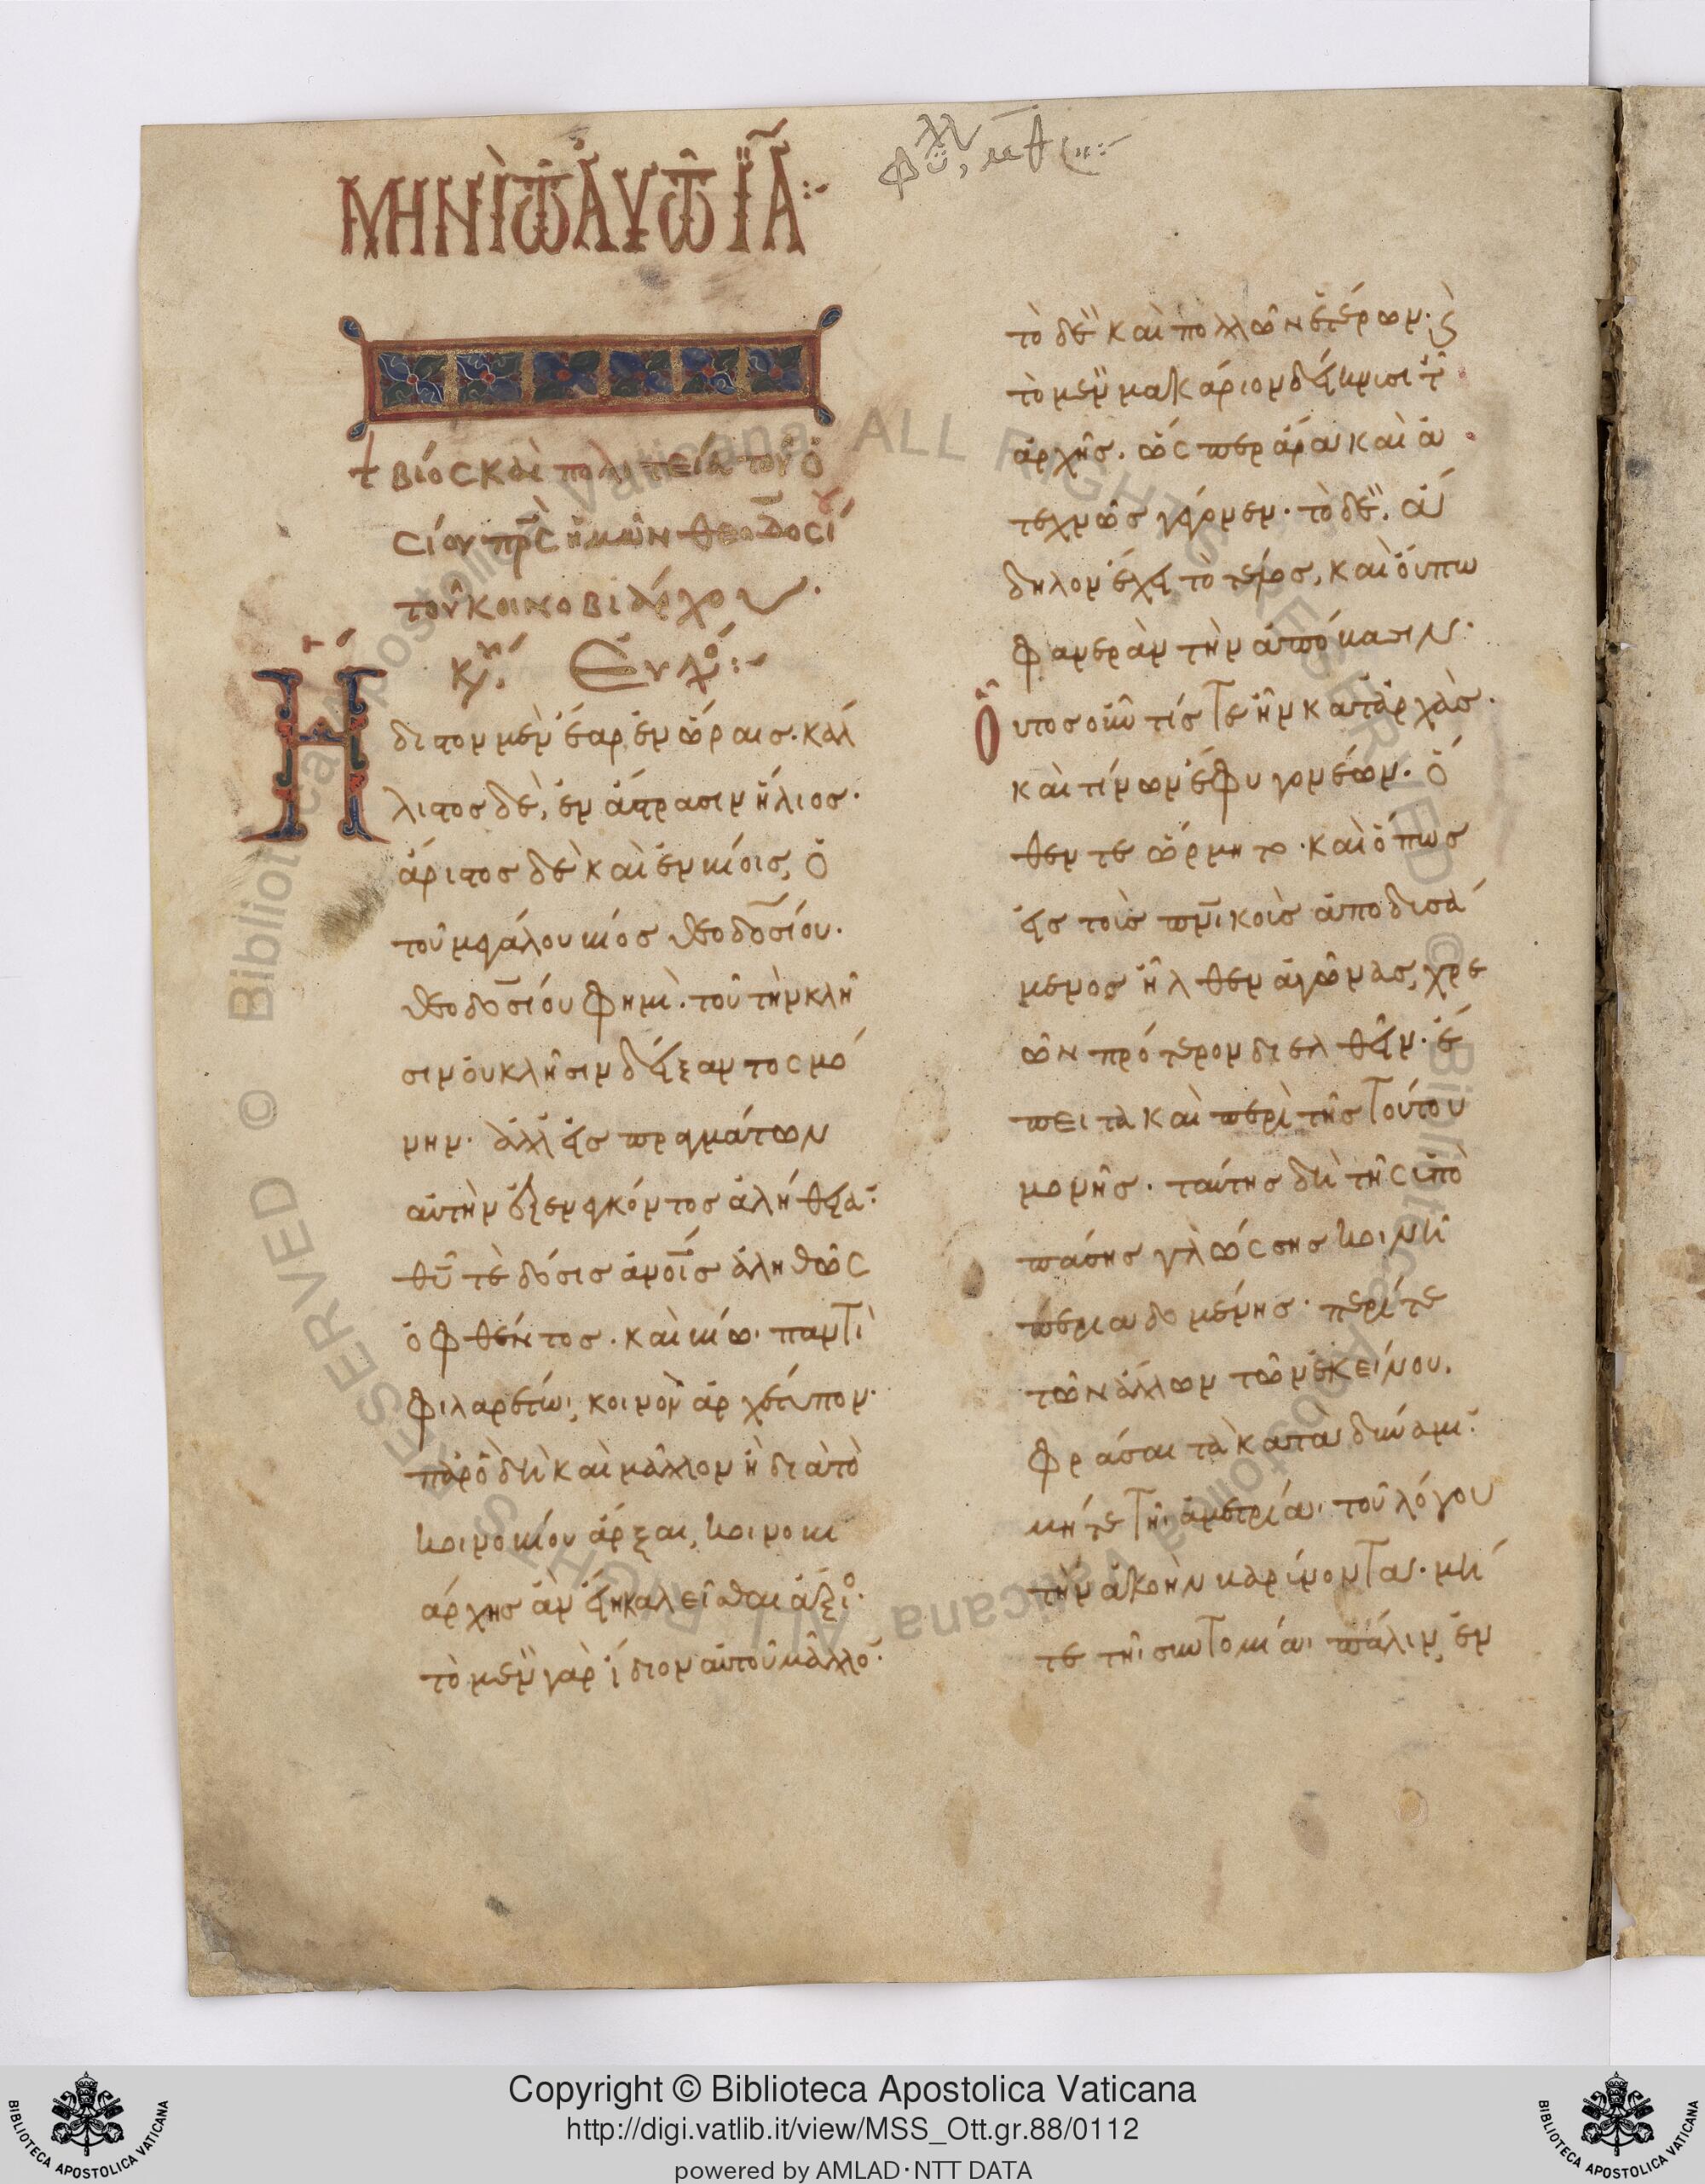 ΜΗΝῚ Τῶ ἈΥΤῶ ΙΑ:~
βίος καὶ πολιτεία τοῦ ὁ
σίου πρς ἡμῶν θεοδοσί
τοῦ κοινοβιάρχου.
Εὐλο:~
Ἥ
διστον μὲν ἔαρ ἐν ὥραις. κάλ
λιστος δὲ, ἐν ἄστρασιν ἥλιος.
ἄριστος δὲ καὶ ἐν βίοις, ὁ
τοῦ μεγάλου βίος θεοδοσίου.
θεοδοσίου φημὶ. τοῦ τὴν κλῆ
σιν οὐ κλῆσιν δείξαντος μό
νην. ἀλλ' εἰς πραγμάτων
αὐτὴν διενεγκόντος ἀλήθεια
θυ τὲ δόσις ἀνοις ἀληθῶς
ὀφθέντος. καὶ βίω παντὶ
φιλαρέτωι, κοινὸν ἀρχέτυπον.
παρὸ δὴ καὶ μᾶλλον ἢ διὰ τὸ
κοινοβίου ἄρξαι, κοινοβι
άρχης ἂν εἴη καλεῖσθαι ἄξιο.
τὸ μὲν γὰρ ἴδιον αὐτοῦ μᾶλλο
τὸ δὲ καὶ πολλῶν ἑτέρων. κ
τὸ μὲν μακάριον δείκνυσι τ
ἀρχῆς. ὥσπερ ἄρα καὶ ἀ
τεχνῶς γέρνεν. τὸ δὲ, ἄ
δηλον ἔχει τὸ τέλος, καὶ οὔπω
φανερὰν τὴν ἀπόβασιν.
Οὗτος οὖν τίς τε ἦν καταρχὰς.
καὶ τίνων ἔφυ γονέων. ὅ
θεν τε ὥρμητο. καὶ ὅπως
εἰς τοὺς πνικοὺς ἀποδυσά
μενος ἦλθεν ἀγῶνας, χρε
ὼν πρότερον διελθεῖν. ἔ
πειτα καὶ περὶ τῆς τούτου
μονῆς. ταύτης δὴ τῆς ὑπὸ
πάσης γλώσσης κοινῆ
περιαδομένης. περί τε
τῶν ἄλλων τῶν ἐκείνου.
φράσαι τὰ κατα δύναμι
μήτε τῆι ἀμετρίαι τοῦ λόγου
τὴν ἀκοὴν βαρύνοντας. μή
τε τῆι συντομίαι πάλιν, ἐν
Copyright © Biblioteca Apostolica Vaticana
http://digi.vatlib.it/view/MSS_Ott.gr.88/0112
powered by AMLAD·NTT DATA
BIBLIOTECA APOSTOLICA VATICANA
BIBLIOTECA APOSTOLICA VATICANA